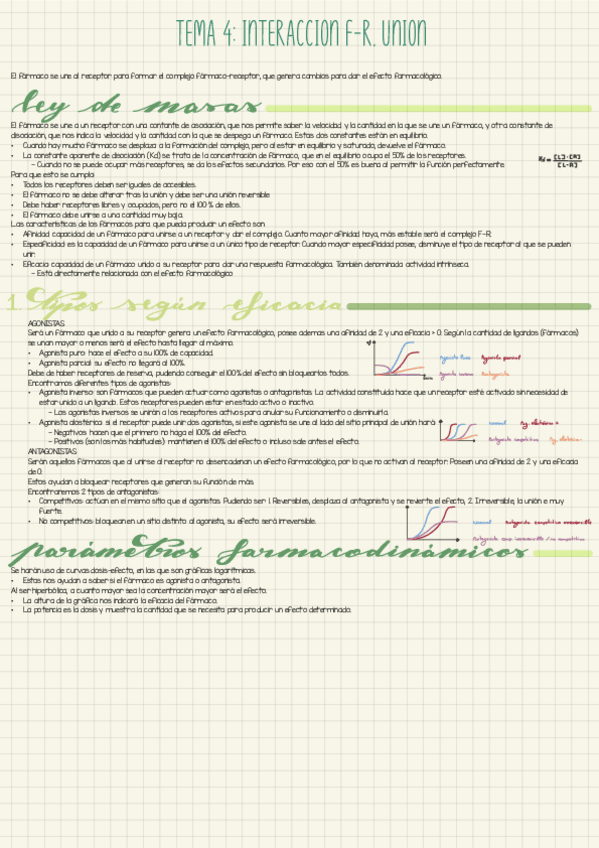 TEMA 4: INTERACCION F-R. UNION
El fármaco se une al receptor para formar el complejo fármaco-receptor, que genera cambios para dar el efecto farmacológico.
ley de masas
El fármaco se une a un receptor con una contante de asociación, que nos permite saber la velocidad y la cantidad en la que se une un fármaco, y otra constante de
disociación, que nos indica la velocidad y la cantidad con la que se despega un fármaco. Estas dos constantes están en equilibrio.
• Cuando hay mucho fármaco se desplaza a la formación del complejo, pero al estar en equilibrio y saturado, devuelve el fármaco.
• La constante aparente de disociación (Kd) se trata de la concentración de fármaco, que en el equilibrio ocupa el 50% de los receptores.
– Cuando no se puede ocupar más receptores, se da los efectos secundarios. Por eso con el 50% es buena al permitir la función perfectamente.
Para que esto se cumpla:
• Todos los receptores deben ser iguales de accesibles.
• El fármaco no se debe alterar tras la unión y debe ser una unión reversible
• Debe haber receptores libres y ocupados, pero no el 100 % de ellos.
• El fármaco debe unirse a una cantidad muy baja.
Las características de los fármacos para que pueda producir un efecto son:
• Afinidad: capacidad de un fármaco para unirse a un receptor y dar el complejo. Cuanto mayor afinidad haya, más estable será el complejo F-R.
• Especificidad: es la capacidad de un fármaco para unirse a un único tipo de receptor. Cuando mayor especificidad posee, disminuye el tipo de receptor al que se pueden
unir.
• Eficacia: capacidad de un fármaco unido a su receptor para dar una respuesta farmacológica. También denominada actividad intrínseca.
– Está directamente relacionada con el efecto farmacológico
1. Tipos según eficacia
AGONISTAS
Será un fármaco que unido a su receptor genera un efecto farmacológico, posee ademas una afinidad de 2 y una eficacia > 0. Según la cantidad de ligandos (fármacos)
se unan mayor o menos será el efecto hasta llegar al máximo.
• Agonista puro: hace el efecto a su 100% de capacidad.
• Agonista parcial: su efecto no llegará al 100%.
Debe de haber receptores de reserva, pudiendo conseguir el 100% del efecto sin bloquearlos todos.
Encontramos diferentes tipos de agonistas:
• Agonista inverso: son fármacos que pueden actuar como agonistas o antagonistas. La actividad constituida hace que un receptor esté activado sin necesidad de
estar unido a un ligando. Estos receptores pueden estar en estado activo o inactivo.
– Los agonistas inversos se unirán a los receptores activos para anular su funcionamiento o disminuirla.
• Agonista alostérico: si el receptor puede unir dos agonistas, si este agonista se une al lado del sitio principal de unión hará:
– Negativos: hacen que el primero no haga el 100% del efecto.
– Positivos (son las más habituales): mantienen el 100% del efecto o incluso sale antes el efecto.
ANTAGONISTAS
Serán aquellos fármacos que al unirse al receptor no desencadenan el efecto farmacológico, por lo que no activan al receptor. Poseen una afinidad de 2 y una eficacia
de 0.
Estos ayudan a bloquear receptores que generan su función de más.
Encontraremos 2 tipos de antagonistas:
• Competitivos: actúan en el mismo sitio que el agonistas. Pudiendo ser: 1. Reversibles, desplaza al antagonista y se revierte el efecto, 2. Irreversible, la unión e muy
fuerte.
• No competitivos: bloquean en un sitio distinto al agonista, su efecto será irreversible.
parámetros farmacodinámicos
Se harán uso de curvas dosis-efecto, en las que son gráficas logarítmicas.
• Estas nos ayudan a saber si el fármaco es agonista o antagonista.
Al ser hiperbólica, a cuanto mayor sea la concentración mayor será el efecto.
• La altura de la gráfica nos indicará la eficacia del fármaco.
• La potencia es la dosis y muestra la cantidad que se necesita para producir un efecto determinado.